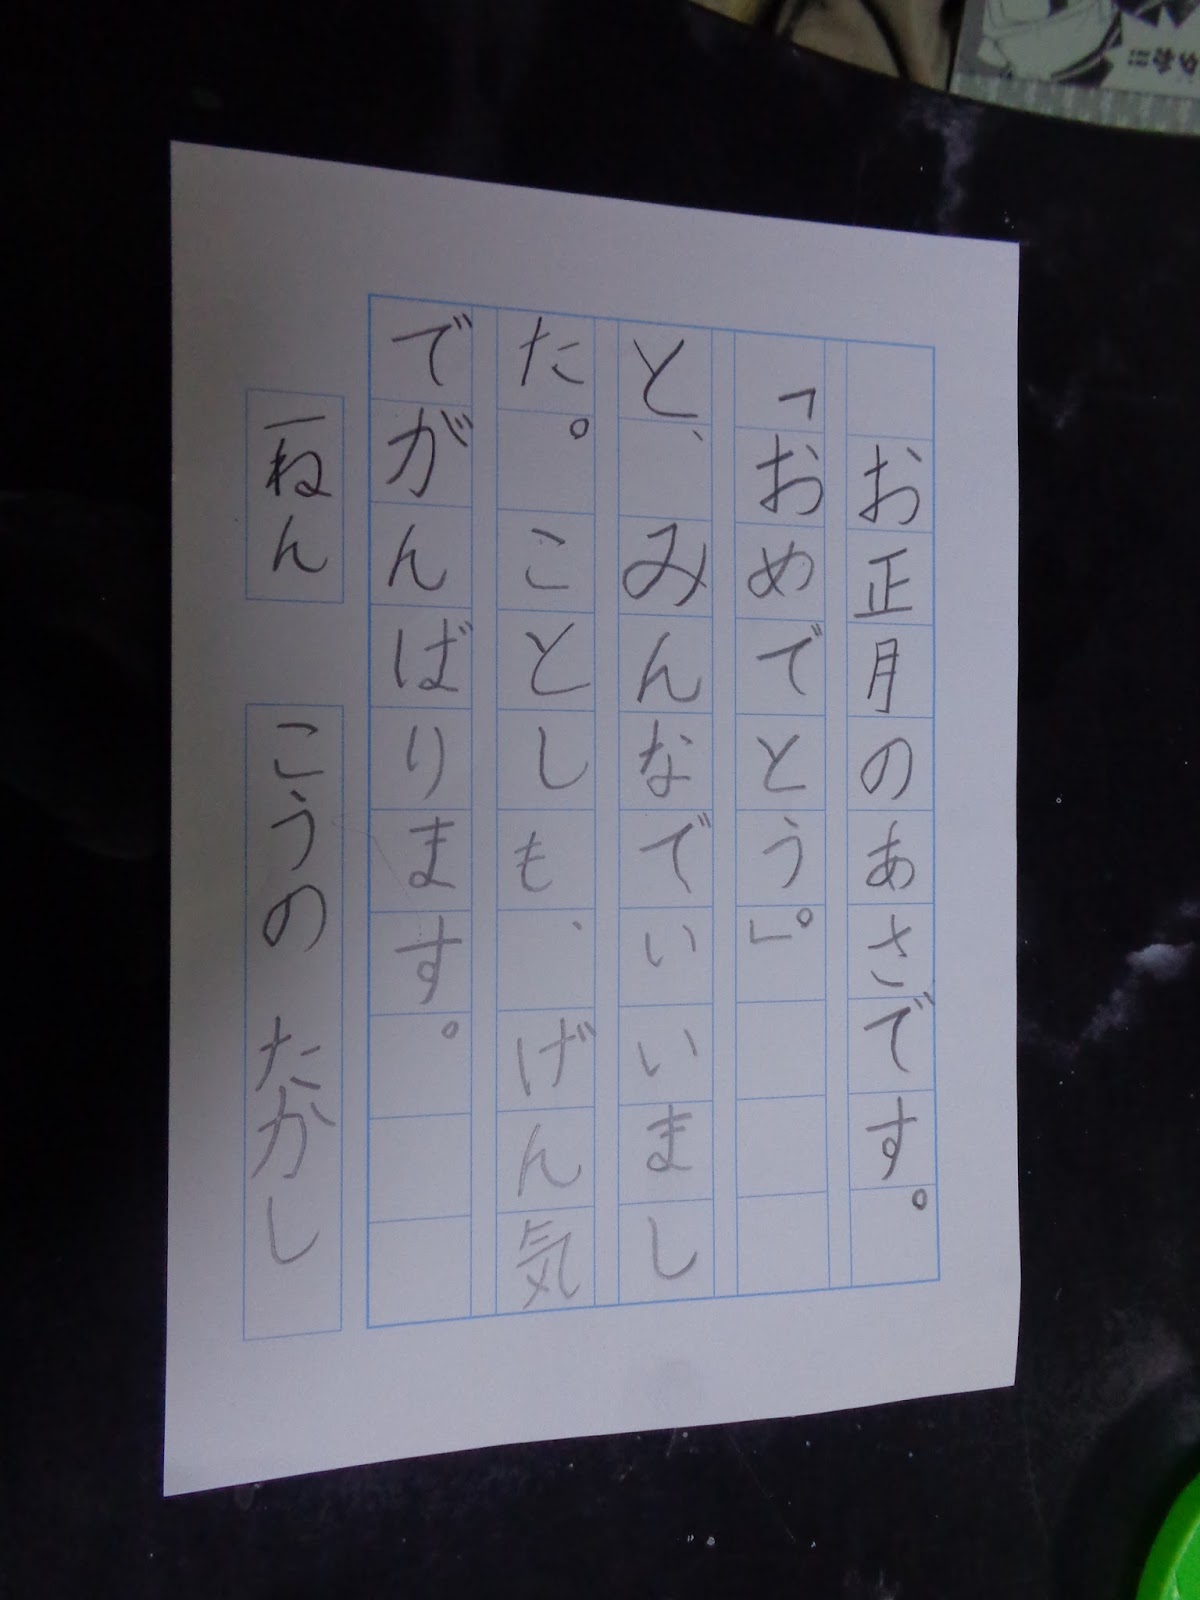 お正月のあさです。
「おめでとう。」
と、みんなでいいまし
た。ことしも、げん気
でがんばります。
一ねん こうの たかし